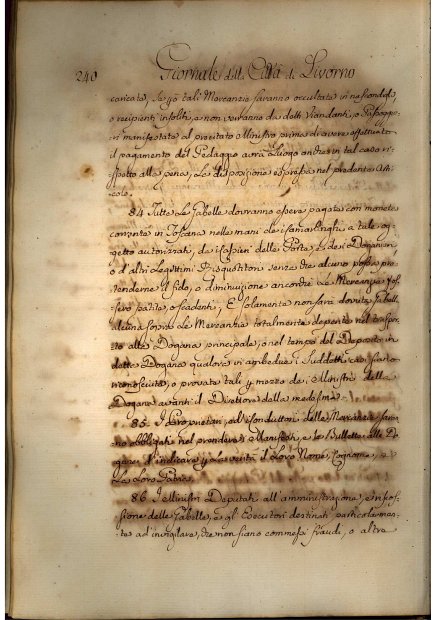 240 Giornale della Città di Livorno
caricate, Se però tali Mercanzie saranno occultate in nascondigli,
o recipienti insoliti, e non verranno da detti Viandanti, o Passegge-
ri manifestate al precitato Ministro prima di avere effettuato
il pagamento del Pedaggio avrà Luogo anche in tal caso ri-
spetto alla pena, La disposizione espressa nel precedente Arti-
colo.
84. Tutte Le Gabelle dovranno essere pagate con monete
corrente in Toscana nelle mani de Camarlinghi a tale og-
getto autorizzati, da Cassieri delle Porte, e dei Doganieri,
o d'altri Legittimi Esquisitori senza che alcuno possa pre-
tenderne il fido, o diminuzione ancorchè Le Mercanzie fos-
sero patite, o scadenti, E solamente non sarà dovuta Gabella
alcuna sopra Le Mercanzie totalmente deperite nel traspor-
to alla Dogana principale, o nel tempo del Deposito in
dette Dogane qualora in ambedue i Suddetti casi siano
riconosciute, o provate tali per mezzo dei Ministri della
Dogana avanti il Direttore della medesima.
85. I Proprietari, od i Conduttori delle Mercanzie saran-
no obbligati nel prendere i Manifesti, e le Bullette alle Do-
gane d'indicare per La verità il Loro Nome, Cognome, e
La Loro Patria.
86. I Ministri Deputati all'amministrazione, e riscos-
sione delle Gabelle, e gl' Esecutori destinati particolarmen-
te ad invigilare, che non siano commessi fraudi, o altre